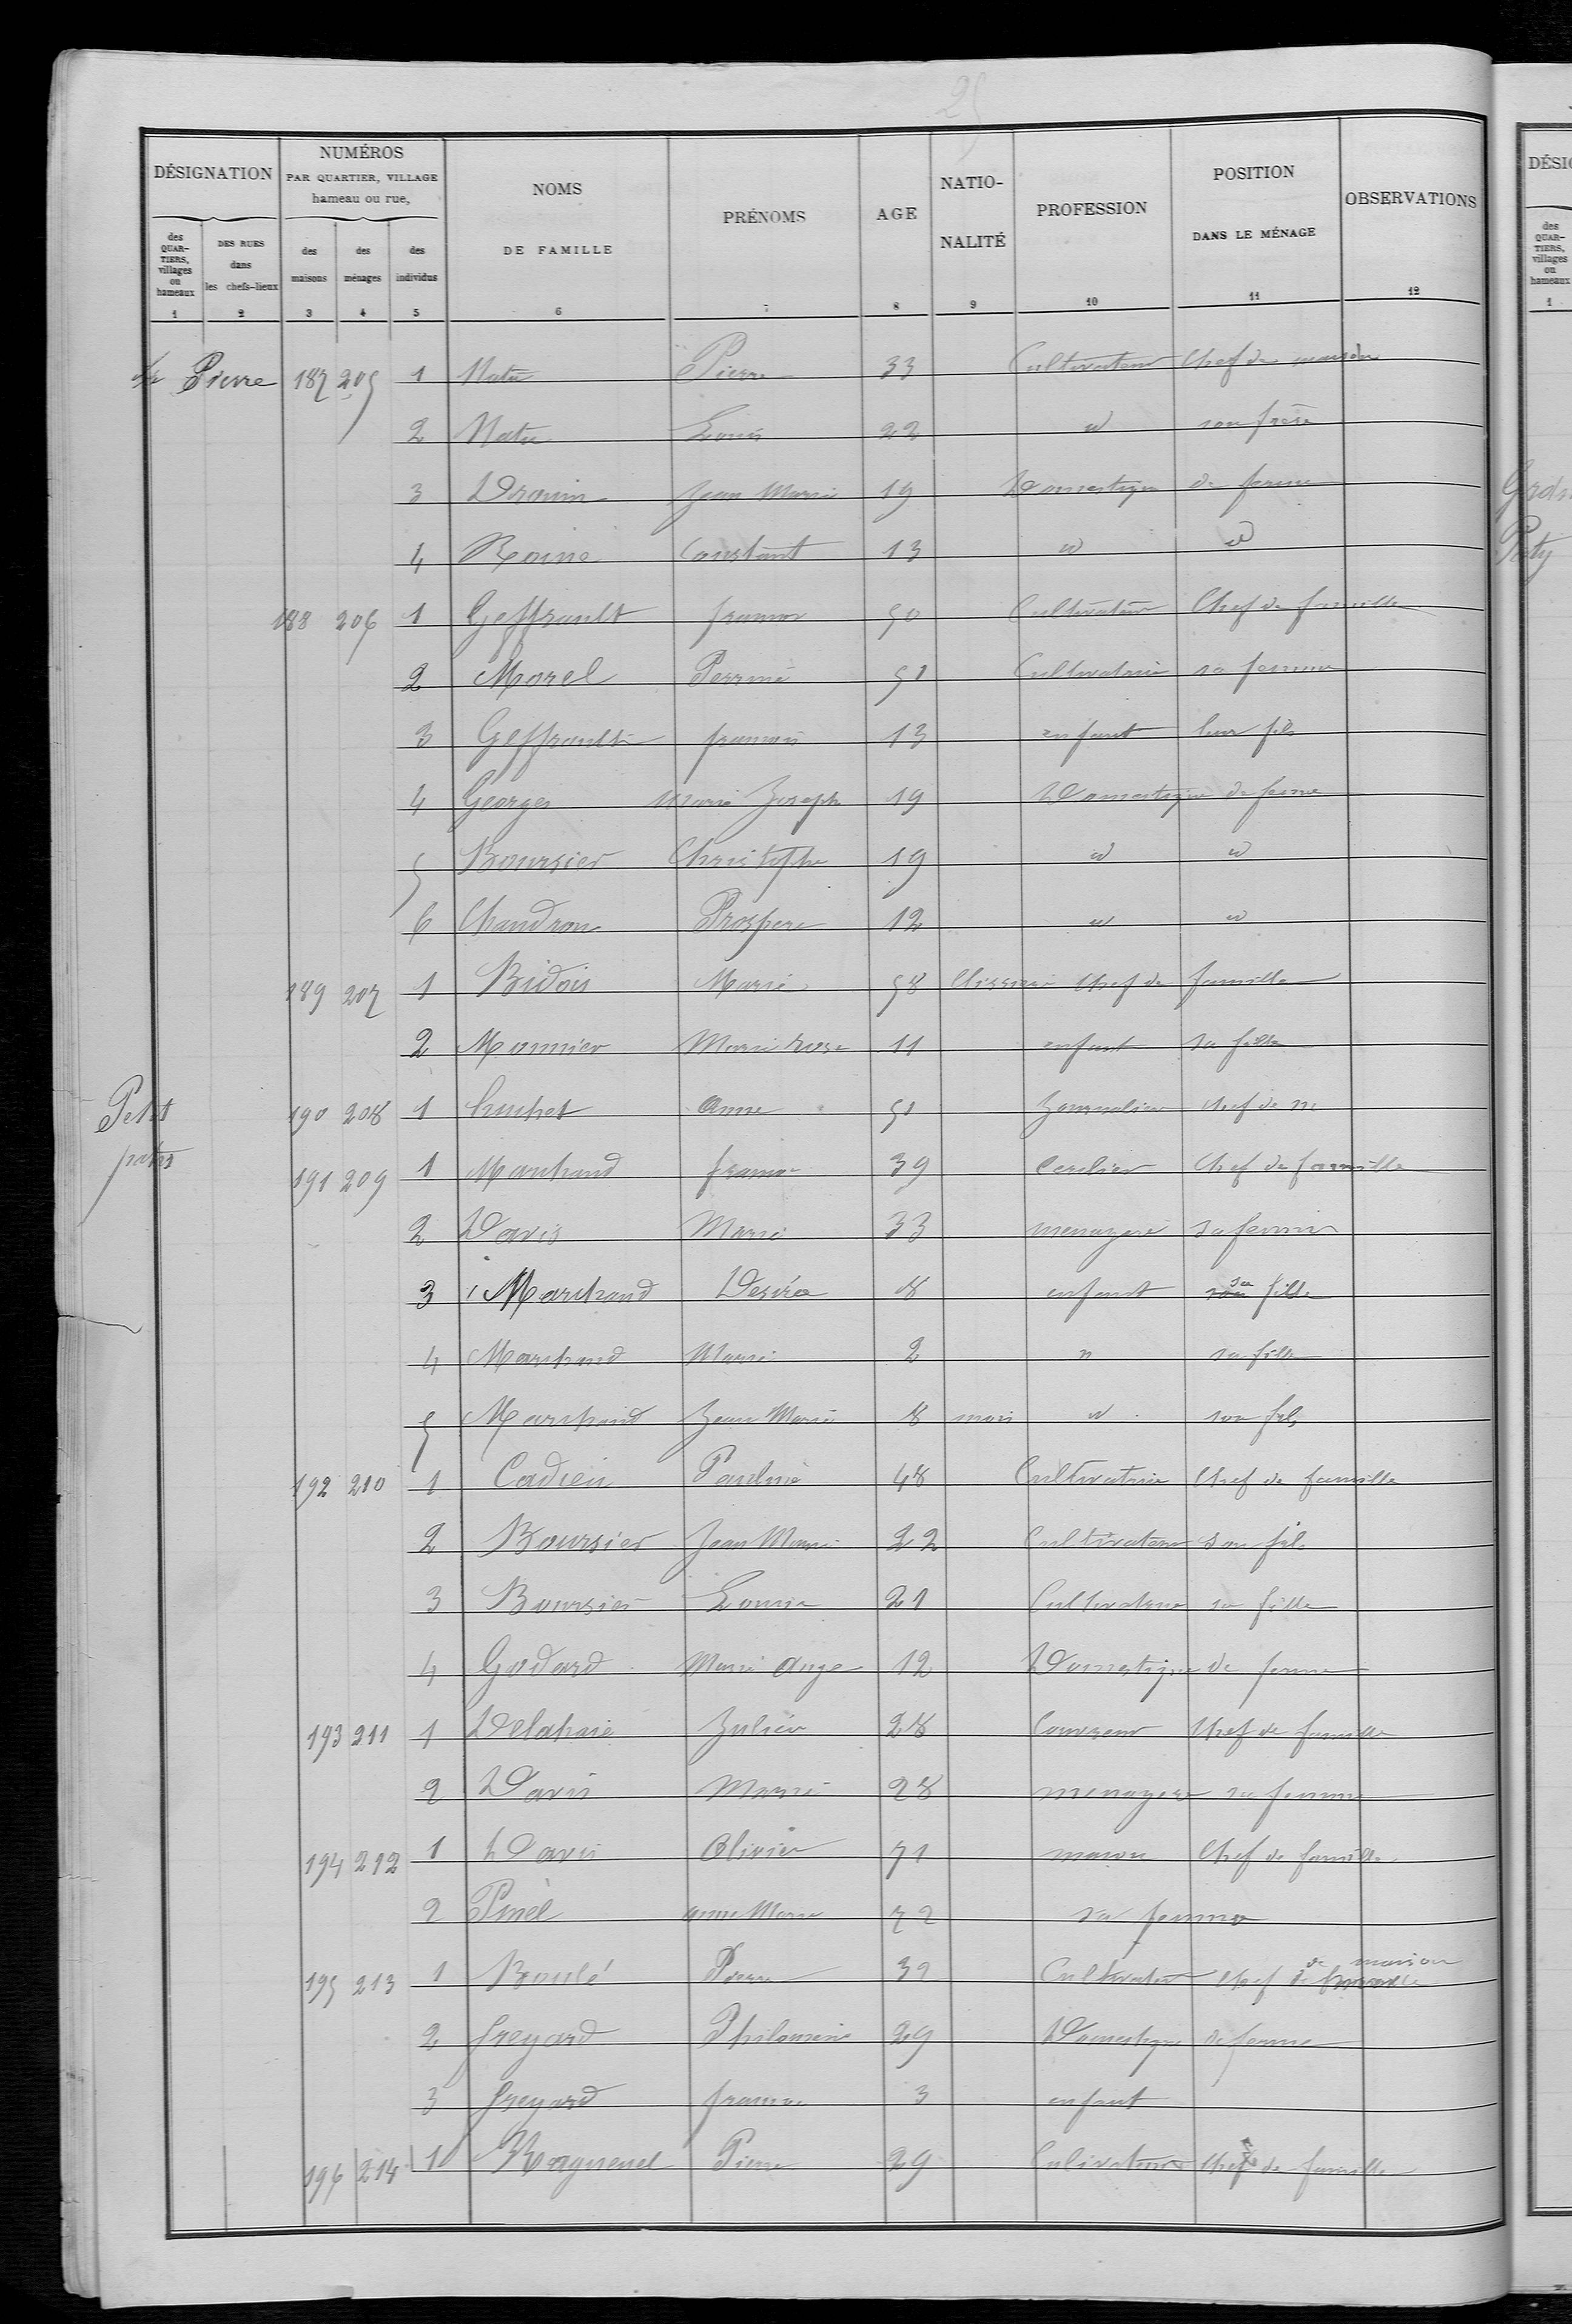 25
DÉSIGNATION NUMÉROS PAR QUARTIER, VILLAGE hameau ou rue, NOMS DE FAMILLE PRÉNOMS AGE NATIO-NALITÉ PROFESSION POSITION DANS LE MÉNAGE OBSERVATIONS
des QUAR-TIERS, villages ou hameaux DES RUES dans les chefs-lieux des maisons des ménages des individus
1 2 3 4 5 6 7 8 9 10 11 12
Pierre 187 205 1 Pierre 33 Cultivateur Chef de maison
2 Louis 22 id son frère
3 Drouin Jean Marie 19 Domestique de ferme
4 Constant 13 id id
188 206 1 Geffrault françois 50 Cultivateur Chef de famille
2 Morel Perrine 51 Cultivatrice sa femme
3 Geffrault françois 13 enfant leur fils
4 Georges Marie Joseph 19 Domestique de ferme
5 Boursier Christophe 19 id id
6 Chaudron Prosper 12 id id
189 207 1 Bidois Marie 58 Chef de famille
2 Monnier Marie Rose 11 enfant sa fille
Petit
190 208 1 Anne 51 Journalier chef de m
191 209 1 Marchand françois 39 Cerclier Chef de famille
2 Davis Marie 33 menagere sa femme
3 Marchand Desirée 8 enfant sa fille
4 Marchand Marie 2 " sa fille
5 Marchand Jean Marie 8 mois id son fils
192 210 1 Cadieu Pauline 48 Cultivatrice Chef de famille
2 Boursier Jean Marie 22 Cultivateur son fils
3 Boursier Louise 21 Cultivatrice sa fille
4 Godard Marie Ange 12 Domestique de ferme
193 211 1 Delahaie Julien 28 Couvreur Chef de famille
2 Davis Marie 28 menagere sa femme
194 212 1 Davis Olivier 71 maçon Chef de famille
2 Pinel anne Marie 72 sa femme
195 213 1 Boulé Pierre 39 Cultivateur chef de maison
2 freyard Philomène 29 Domestique de ferme
3 freyard 3 enfant
196 214 1 Ragnenel Pierre 29 Culivateur Chef de famille